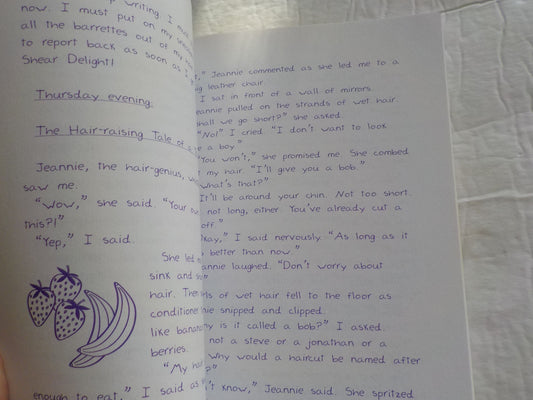 writing, I
now. I must put on my
all the barrettes out of my
to report back as soon as I
Shear Delight!
Thursday evening.
The Hair-raising Tale of
Jeannie, the hair-genius,
saw me.
"Wow," she said. "Your
this?!"
"Yep," I said.
She led
sink and
hair. The
conditione
like banana
berries.
"My
enough to eat," I said as
" Jeannie commented as she led me to a
leather chair.
I sat in front of a wall of mirrors.
eannie pulled on the strands of wet hair.
shall we go short?" she asked.
"No!" I cried. "I don't want to look
a boy."
"You won't," she promised me. She combed
my hair. "I'll give you a bob."
what's that?"
It'll be around your chin. Not too short.
not long, either. You've already cut a
off."
kay," I said nervously. "As long as it
better than now."
annie laughed. "Don't worry about
of wet hair fell to the floor as
nie snipped and clipped.
hy is it called a bob?" I asked.
not a steve or a jonathan or a
Why would a haircut be named after
?"
't know," Jeannie said. She spritzed